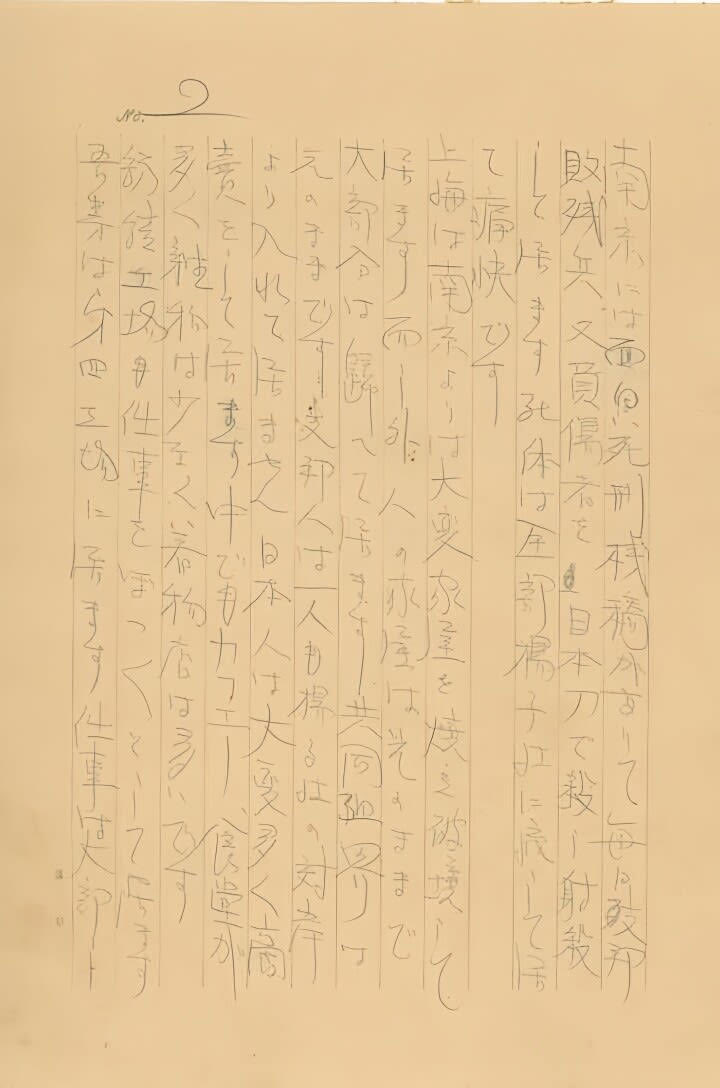 No. 2
南京には面白い死刑桟橋がありて毎日支那
敗残兵又負傷者を日本刀で殺し射殺
して居ます 死体は全部楊子江に流して居
て痛快です
上海は南京よりは大変家屋を焼き破壊して
居ます 而し外人の家屋は元のままで
大部分は帰へて居ます 共同租界は
元のままです 支那人は一人も揚子江の対岸
より入れて居ません 日本人は大変多く商
売をして居ます 中でもカフエー、食堂が
多く雑物は少なく 着物店は多いです
紡績工場も仕事をぼつ〱として居ます
吾等は第四工場に居ます 仕事は大部